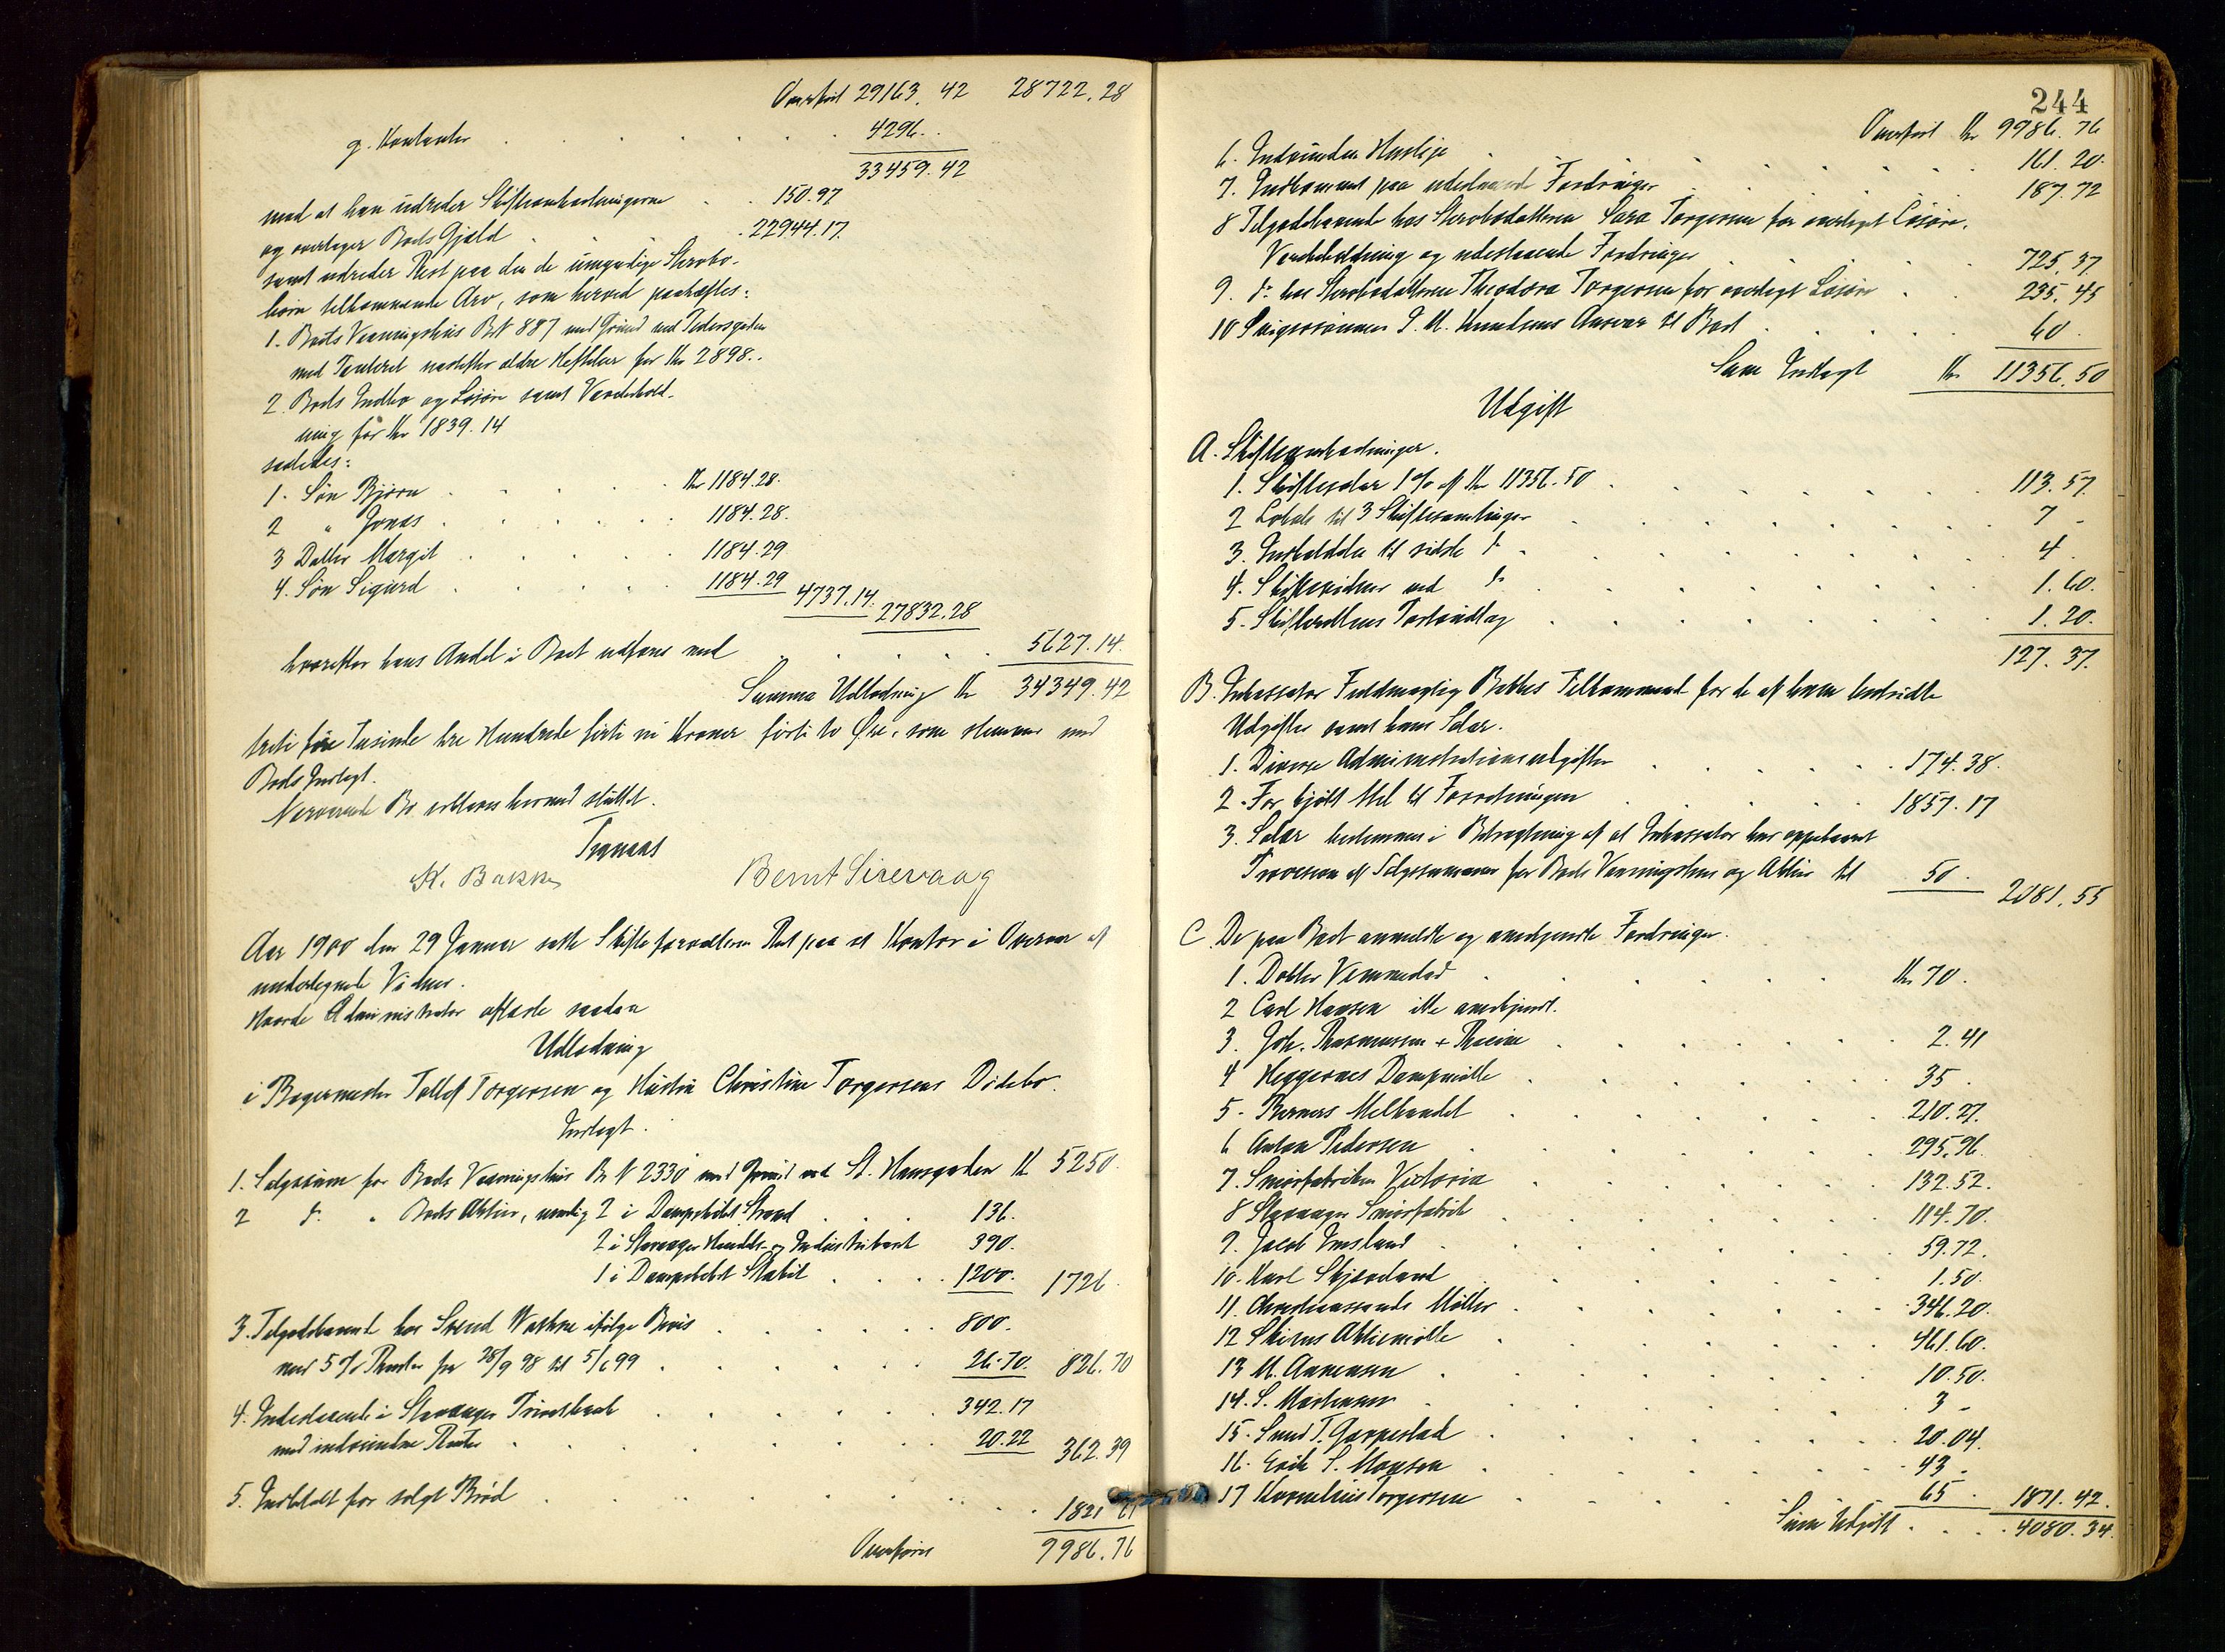 Overført 29163.42 28722.28
g. Kontanter 4296..
33459.42
mod at han udreder Skifteomkostningerne 150.97
og overtager Boets Gjæld 22944.17.
samt udreder Rest paa den de umyndige Stervbo-
børn tilkommende Arv, som herved paahæftes:
1. Boets Vaaningshus B N 887 med Grund ved Pedersgaden
med Panteret næstefter ældre Heftelser for Kr 2898..
2. Boets Indbo og Løsøre samt Varebehold-
ning for Kr 1839.14
saaledes:
1. Søn Bjørn Kr 1184.28.
2 " Jonas 1184.28.
3 Datter Margit 1184.29
4. Søn Sigurd 1184.29 4737.14. 27832.28
hvorefter hans Andel i Boet udføres med 5627.14.
Summa Udlodning Kr 34349.42
treti fire Tusinde tre Hundrede førti ni Kroner førti to Øre, som stemmer med
Boets Indtægt.
Nærværende Bo erklæres hermed sluttet.
Tranaas
K. Bakke Bernt Sirevaag
Aar 1900 den 29 Januar satte Skifteforvalteren Ret paa sit Kontor i Overvær af
undertegnede Vidner.
Hvorde Administrator aflagde saadan
Udlodning
i Bagermester Tollef Torgersen og Hustru Christine Torgersens Dødsbo.
Indtægt.
1. Salgssum for Boets Vaaningshus B N 2330 med Grund ved St. Hansgaden Kr 5250.
2 do. " Boets Aktier, nemlig 2 i Dampskibet Strand 136.
2 i Stavanger Handels- og Industribank 390.
1 i Dampskibet Stabil 1200. 1726.
3. Tilgodehavende hos Svend ifølge Bevis 800.
med 5 % Renter fra 28/9 98 til 5/6 99 26.70. 826.70
4. Indestaaende i Stavanger Privatbank 342.17
med indvundne Renter 20.22 362.39
5. Indbetalt for solgt Brød 1821 67
Overføres 9986.76
244
Overført Kr 9986.76
6. Indvunden Husleje 161.20.
7. Indkommet paa udestaaende Fordringer 187.72
8 Tilgodehavende hos Stervbodatteren Sara Torgersen for overtaget Løsøre,
Varebeholdning og udestaaende Fordringer 725.37
9. do. hos Stervbodatteren Theodora Torgersen for overtaget Løsøre 235.45
10 Svigersønnen P. M. Knudsens Ansvar til Boet 60.
Sum Indtægt Kr 11356.50
Udgift
A. Skifteomkostninger.
1. Skiftesalær 1 % af Kr 11356.50 113.57.
2 Lokale til 3 Skiftesamlinger 7 -
3. Indkaldelse til sidste do. 4.
4. Skiftevidner ved do. 1.60.
5. Skifterettens Forkündtag 1.20.
127.37.
B. Inkassator Fuldmægtig Bakkes Tilkommende for de af ham bestridte
Udgifter samt hans Salær.
1. Diverse Administrationsudgifter 174.38.
2. For kjøbt Mel til Forretningen 1857.17
3. Salær bestemmes i Betragtning af at Inkassator har oppebaaret
Provision af Salgssummen for Boets Vaaningshus og Aktier til 50. 2081.55
C De paa Boet anmeldte og anerkjendte Fordringer.
1. Doktor Vennesdad Kr 70.
2 Carl Hansen ikke anerkjendt.
3. Joh. Rasmussen + Racine 2.41
4 Heggernes Dampmølle 35.
5. Berners Melhandel 210.27.
6 Anton Pedersen 295.96.
7. Smørfabriken Victoria 132.52.
8 Stavanger Smørfabrik 114.70.
9. Jacob Imsland 59.72.
10. Karl Skjæveland 1.50.
11. Christianssands Møller 346.20.
12 Skiens Aktiemølle 461.60.
13 M. Annensen 10.50.
14. S. Mortensen 3 -
15. Svend T. Garpestad 20.04.
16. Erik S. Monsen 43 -
17 Kornelius Torgersen 65. 1871.42.
Sum Udgift 4080.34.